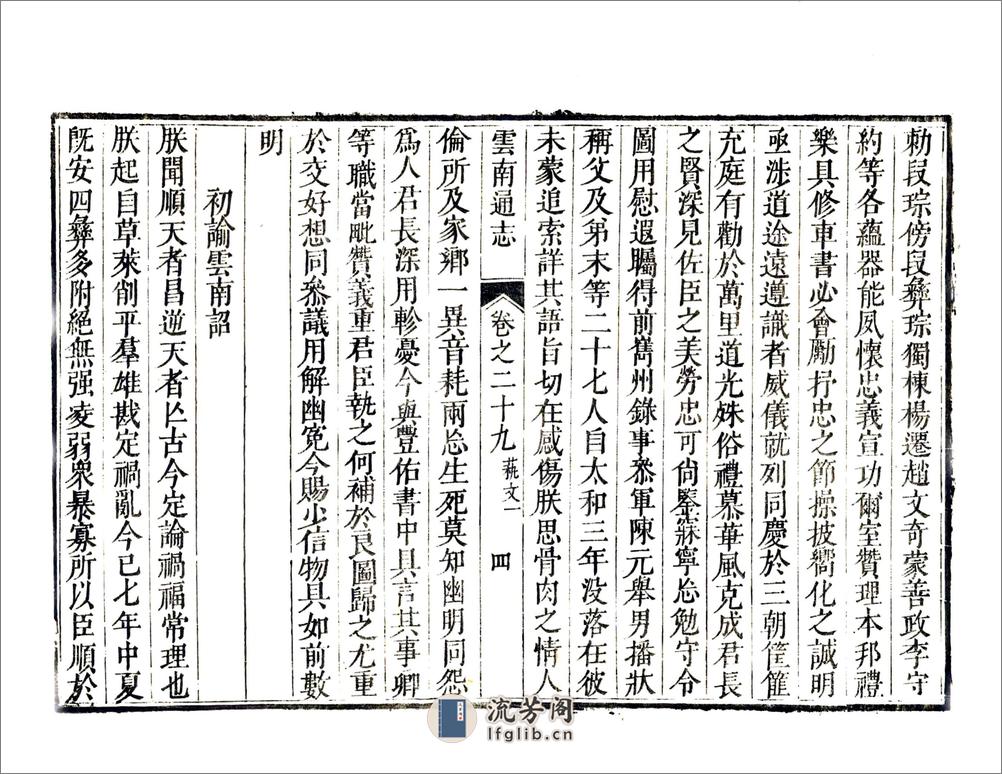 勅段琮傍段彝琮獨棟楊遷趙文奇蒙善政李守
約等各蘊器能夙懷忠義宣功爾室贊理本邦禮
樂具修車書必會勵抒忠之節操披嚮化之誠明
亟洙道途遠遵識者威儀就列同慶於三朝筐篚
充庭有勸於萬里道光姝俗禮慕華風克成君長
之賢深見佐臣之美勞忠可尚鑒寐寧忘勉守令
圖用慰遐矚得前嶲州錄事叅軍陳元舉男播狀
稱父及弟末等二十七人自太和三年没落在彼
未蒙追索詳其語旨切在感傷朕思骨肉之情人
雲南通志 卷之二十九 藝文一 四
倫所及家鄉一異音耗兩忘生死莫知幽明同怨
爲人君長深用軫憂今與豐佑書中具言其事卿
等職當毗贊義重君臣執之何補於良圖歸之尤重
於交好想同叅議用解幽冤今賜少信物具如前數
明
初諭雲南詔
朕聞順天者昌逆天者亾古今定論禍福常理也
朕起自草萊削平羣雄戡定禍亂今已七年中夏
旣安四彝多附絕無强凌弱衆暴寡所以臣順於
流芳阁
lfglib.cn